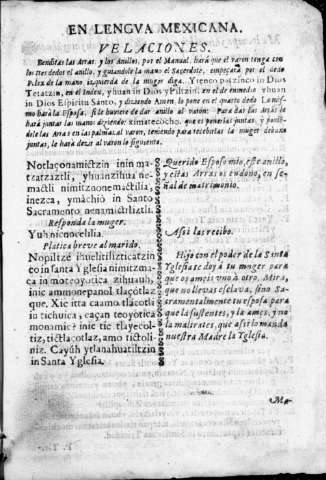 EN LENGVA MEXICANA.
VELACIONES.
Benditas las Arras. y los Anillos, por el Manual. hará que el varon tenga con
los tres dedos el anillo, y guiandole la mano el Sacerdote, empeçará por el dedo
Polex de la mano izquierda de la muger diga. Ytenco patzinco in Dios
Tetatzin, en el Index, yhuan in Dios yPiltzin. en el de enmedio yhuan
in Dios Espiritu Santo, y diziendo Amen. lo pone en el quarto dedo Lo mis-
mo hará la Esposa. si le huviere de dar anillo al varon: Para dar las Arras le
hará juntar las manos diziendo: ximatecocho. que es ponerlas juntas, y ponien-
dole las Arras en las palmas. al varon, teniendo para recebirlas la muger debaxo
juntas, le hará dezir al varon lo siguiente.
Notlaçonamictzin inin ma-
tzatzaztli, yhuanzihua ne-
mactli nimitznonemactilia,
inezca, ymàchiò in Santo
Sacramento nenamictliztli.
Responida la muger.
Yuhninocelilia.
Platica breve al marido.
Nopiltzé ihuelitilizticatzin
co in santa Yglesia nimitzma-
ca in moteoyutica zihuauh,
inic ammonepanoltlaçotlaz-
que. Xic itta caamo tlàcotli
in tichuica, caçan teoyòtica
monamic: inic tic tlayecol-
tiz, tictlaçotlaz, amo tictoli-
niz. Cayúh ytlanahuatiltzin
in Santa Yglesia.
Querido Esposo mio, este anillo,
y estas Arras os endono, en se-
ñal de matrimonio.
Assi las recibo.
Hijo con el poder de la Santa
Yglesia te doy à tu muger para
que os ameys vno à otro. Mira,
que no llevas esclava, sino Sa-
cramentalmente tu esposa para
que la sustentes, y la ames, y no
la maltrates, que assi lo manda
nuestra Madre la Yglesia.
Ma-